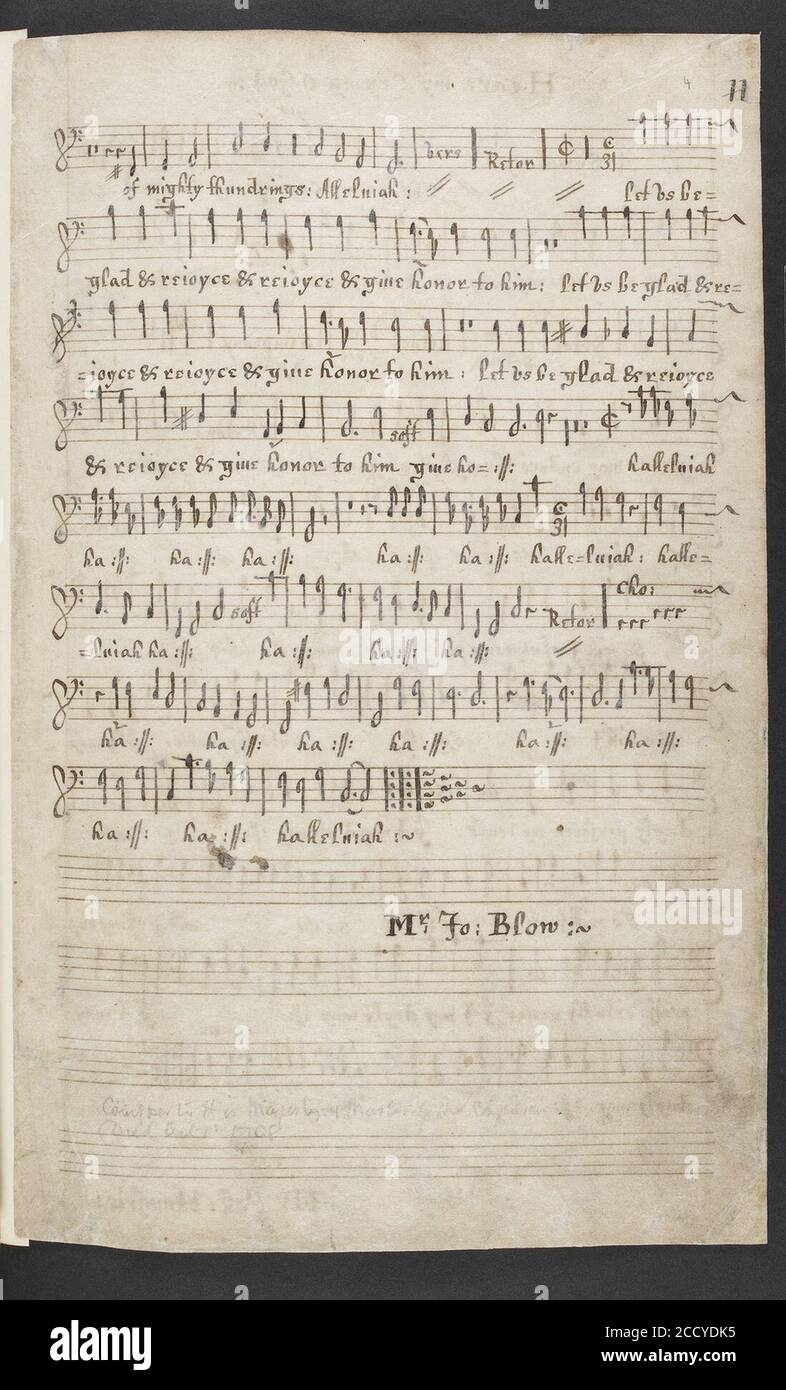 11
4
vers Retor
of mighty thundrings: Alleluiah: Let vs be=
glad & reioyce & reioyce & giue honor to him: Let vs be glad & re=
=ioyce & reioyce & giue honor to him: Let vs be glad & reioyce
soft
& reioyce & giue honor to him giue ho=:∥: halleluiah
ha:∥: ha:∥: ha:∥: ha:∥: ha:∥: halle=luiah: halle=
soft Retor cho:
=luiah ha:∥: ha:∥: ha:∥: ha:∥:
ha:∥: ha:∥: ha:∥: ha:∥: ha:∥: ha:∥:
ha:∥: ha:∥: halleluiah:~
Mr Jo: Blow:~
alamy
Image ID: 2CCYDK5
www.alamy.com